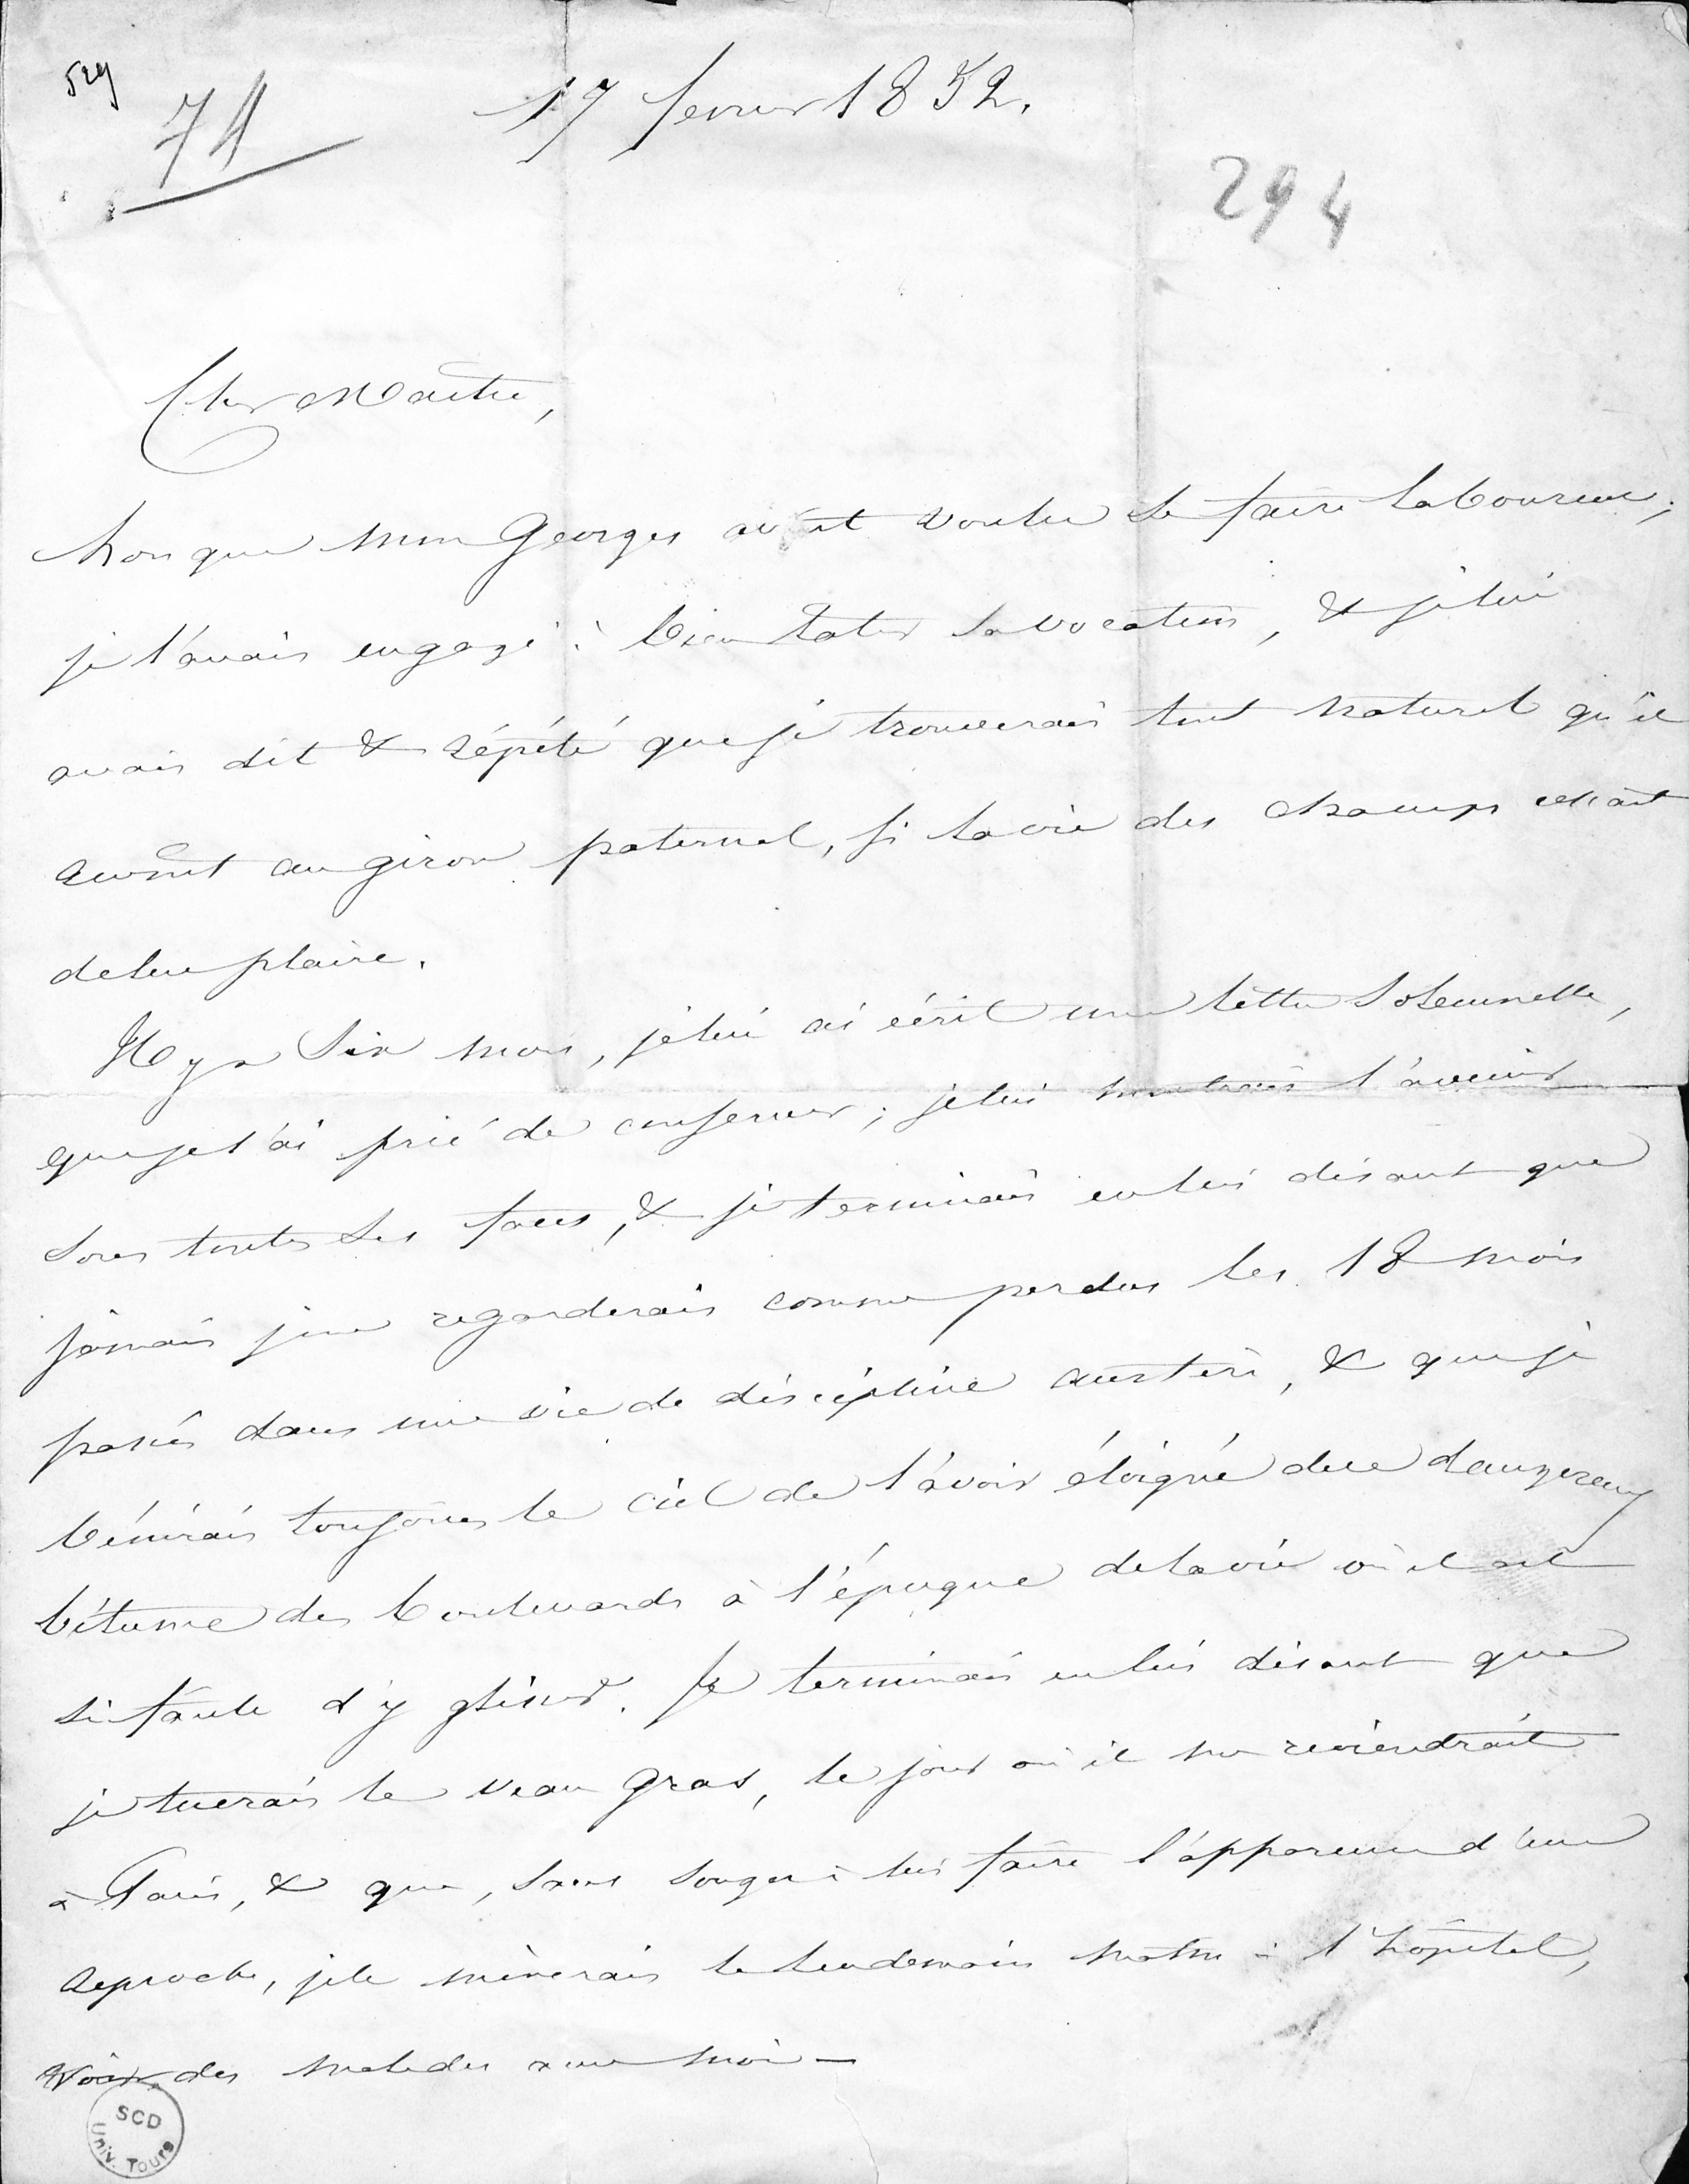 529
74
17 fevrier 1852.
294
Cher Maitre,
Lorsque mon Georges avait voulu se faire laboureur,
je l'avais engagé à bien tater sa vocation, & je lui
avais dit & répété que je trouverais tout naturel qu'il
revint au giron paternel, si la vie des champs cessait
de lui plaire.
Il y a six mois, je lui ai écrit une lettre solennelle,
que je l'ai prié de conserver; je lui montrais l'avenir
sous toutes ses faces, & je terminais en lui disant que
jamais je ne regarderais comme perdus les 18 mois
passés dans une vie de discipline austère, & que je
bénirais toujours le ciel de l'avoir éloigné du dangereux
bitume des boulevards à l'époque de la vie où il est
si facile d'y glisser. Je terminais en lui disant que
je tuerais le veau gras, le jour où il me reviendrait
à Paris, & que, sans songer à lui faire l'apparence d'un
reproche, je le mènerais le lendemain matin à l'hôpital,
voir des malades avec moi —
SCD
Univ. Tours